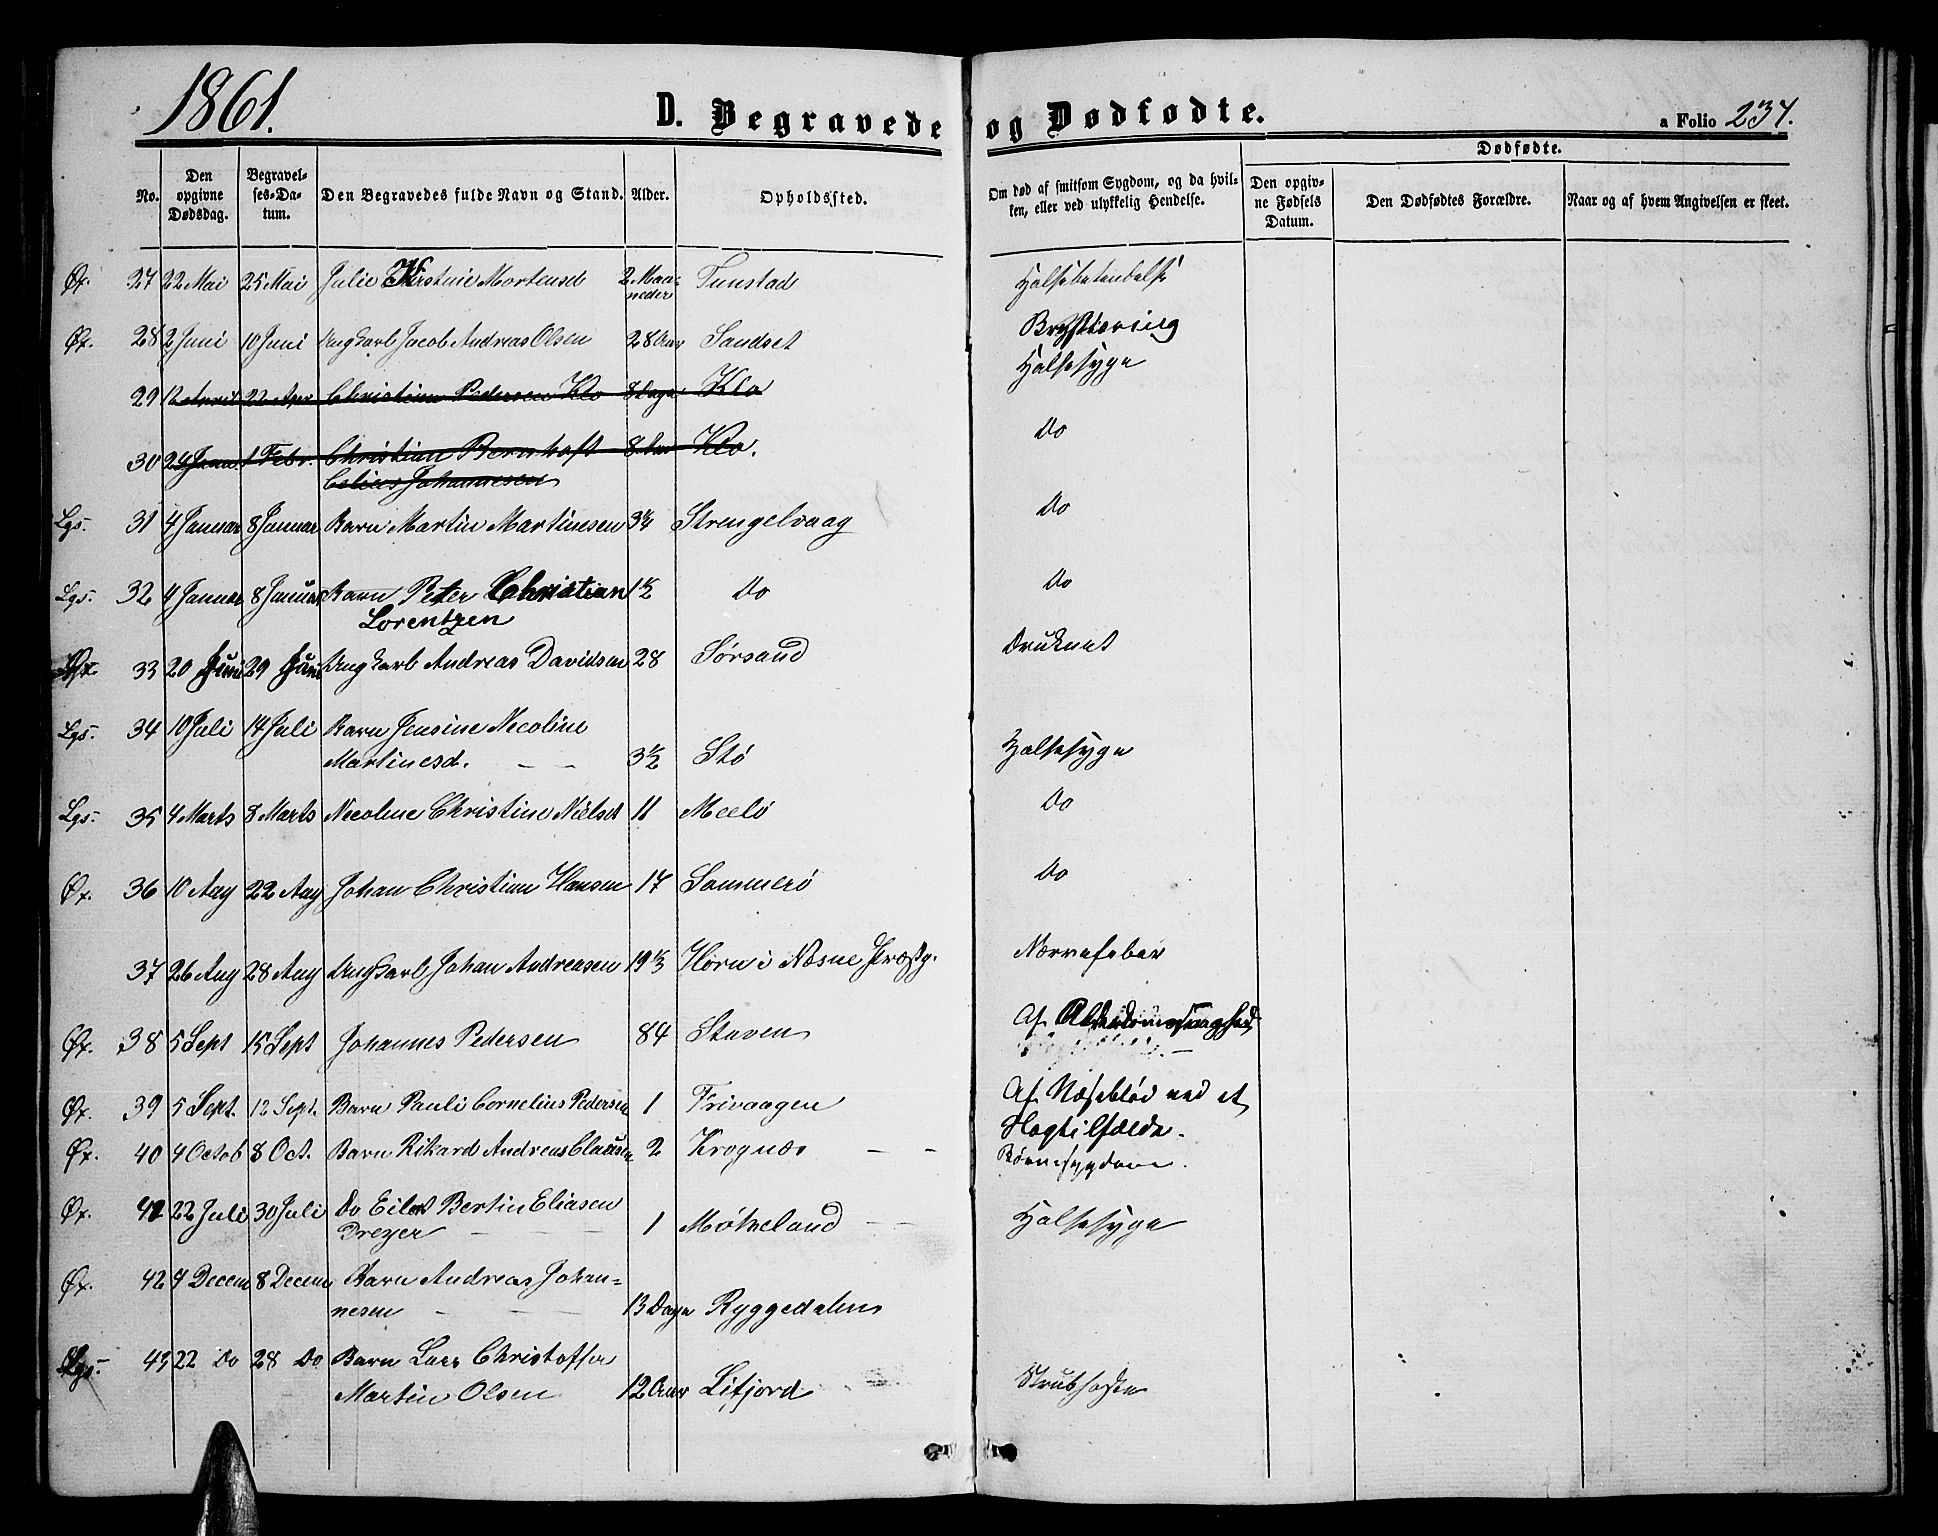 1861.
D. Begravede og Dødfødte.
a Folio 237.
Dødfødte.
No. Den opgivne Dødsdag. Begravelses-Datum. Den Begravedes fulde Navn og Stand. Alder. Opholdssted. Om død af smitsom Sygdom, og da hvilken, eller ved ulykkelig Hendelse. Den opgivne Fødsels Datum. Den Dødfødtes Forældre. Naar og af hvem Angivelsen er skeet.
Øx. 27 22 Mai 25 Mai Julie Kirstine Mortensd 2 Maaneder Tunstad Halsebetændelse
Øx. 28 2 Juni 10 Juni Ungkarl Jacob Andreas Olsen 28 Aar Sandset Brystsvering
29 12 April 22 Apr Christian Pedersen Klo 8 Dage Klo Halsesyge
30 24 Janu. 1 Febr. Christian Bernhoft 8 Aar Klo. Do
Celius Johannesen
Lgs. 31 4 Januar 8 Januar Barn Martin Martinsen 3¼ Strengelvaag Do
Lgs. 32 4 Januar 8 Januar Barn Peter Christian 1½ Do Do
Lorentzen
Øx. 33 20 Juni 29 Juni Ungkarl Andreas Davidsen 28 Sørsand Druknet
Lgs. 34 10 Juli 14 Juli Barn Jensine Nicoline
Martinesd. 3½ Stø Halsesyge
Lgs. 35 4 Marts 8 Marts Nicoline Christine Nielsd 11 Meelø Do
Øx. 36 10 Aug 22 Aug Johan Christian Hansen 17 Sommerø Do
37 26 Aug 28 Aug Ungkarl Johan Andreasen 19⅓ Horn i Næsne Præstg. Nervefeber
Øx. 38 5 Sept 15 Sept Johannes Pedersen 84 Staven Af Alderdomssvaghed
Øx. 39 5 Sept. 12 Sept. Barn Pauli Cornelius Pedersen 1 Frivaagen Af Næseblod ved et
Slagtilfælde.
Øx. 40 4 Octob 8 Oct. Barn Rikard Andreas Clausen 2 Krognæs Børnesygdom.
Øx. 41 22 Juli 30 Juli Do Eilert Bertin Eliasen
Dreyer 1 Møkeland Halsesyge
Øx. 42 4 Decem 8 Decem Barn Andreas Johan=
nesen 13 Dage Ryggedalen
Lgs. 43 22 Do 28 Do Barn Lars Christoffer
Martin Olsen 12 Aar Lifjord Strubhoste